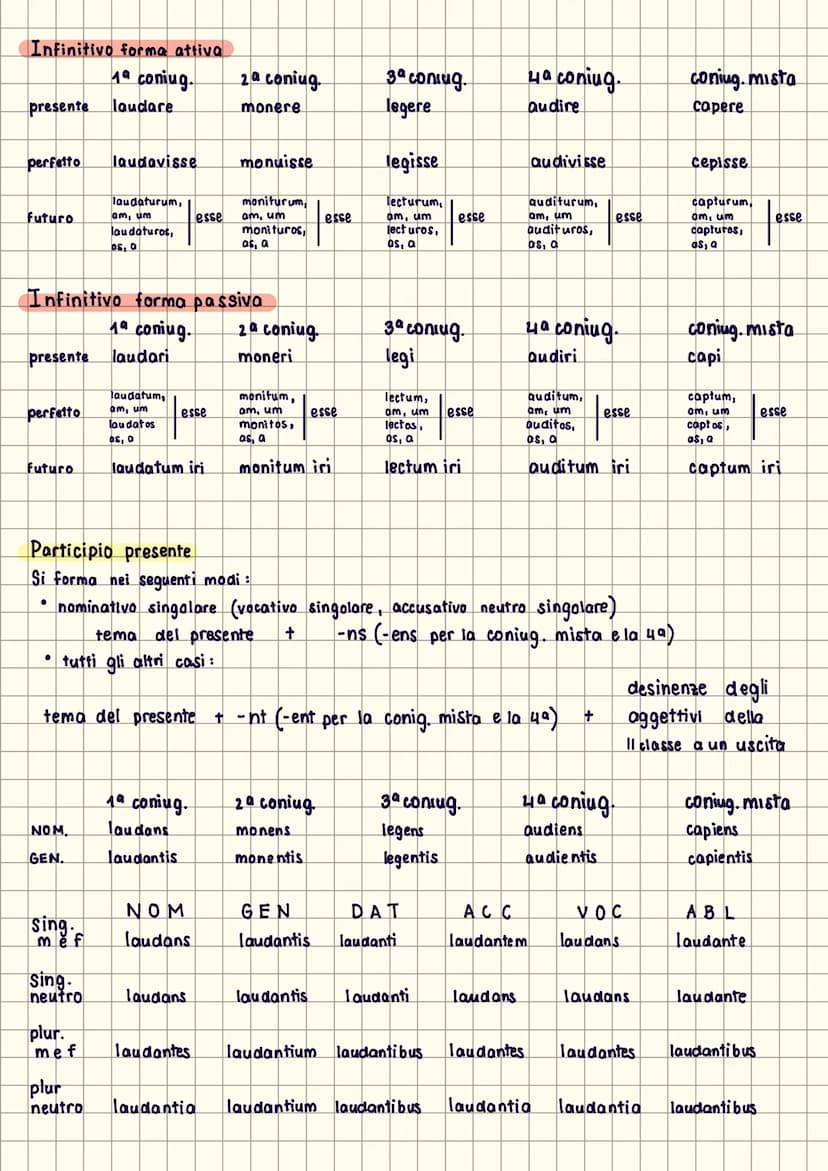 Infinitivo forma attiva
1ª coniug. 2ª coniug. 3ª coniug. 4ª coniug. coniug. mista
presente laudare monere legere audire capere
perfetto laudavisse monuisse legisse audivisse cepisse
laudaturum, moniturum, lecturum, auditurum, capturum,
futuro am, um esse am, um esse am, um esse am, um esse am, um esse
laudaturos, monituros, lecturos, audituros, capturos,
as, a as, a as, a as, a as, a
Infinitivo forma passiva
1ª coniug. 2ª coniug. 3ª coniug. 4ª coniug. coniug. mista
presente laudari moneri legi audiri capi
laudatum, monitum, lectum, auditum, captum,
perfetto am, um esse am, um esse am, um esse am, um esse am, um esse
laudatos monitos, lectos, auditos, captos,
as, a as, a as, a as, a as, a
futuro laudatum iri monitum iri lectum iri auditum iri captum iri
Participio presente
Si forma nei seguenti modi:
• nominativo singolare (vocativo singolare, accusativo neutro singolare)
tema del presente + -ns (-ens per la coniug. mista e la 4ª)
• tutti gli altri casi:
desinenze degli
tema del presente + -nt (-ent per la conig. mista e la 4ª) + aggettivi della
II classe a un uscita
1ª coniug. 2ª coniug. 3ª coniug. 4ª coniug. coniug. mista
NOM. laudans monens legens audiens capiens
GEN. laudantis monentis legentis audientis capientis
NOM GEN DAT ACC VOC ABL
Sing.
m e f laudans laudantis laudanti laudantem laudans laudante
Sing.
neutro laudans laudantis laudanti laudans laudans laudante
plur.
m e f laudantes laudantium laudantibus laudantes laudantes laudantibus
plur
neutro laudantia laudantium laudantibus laudantia laudantia laudantibus